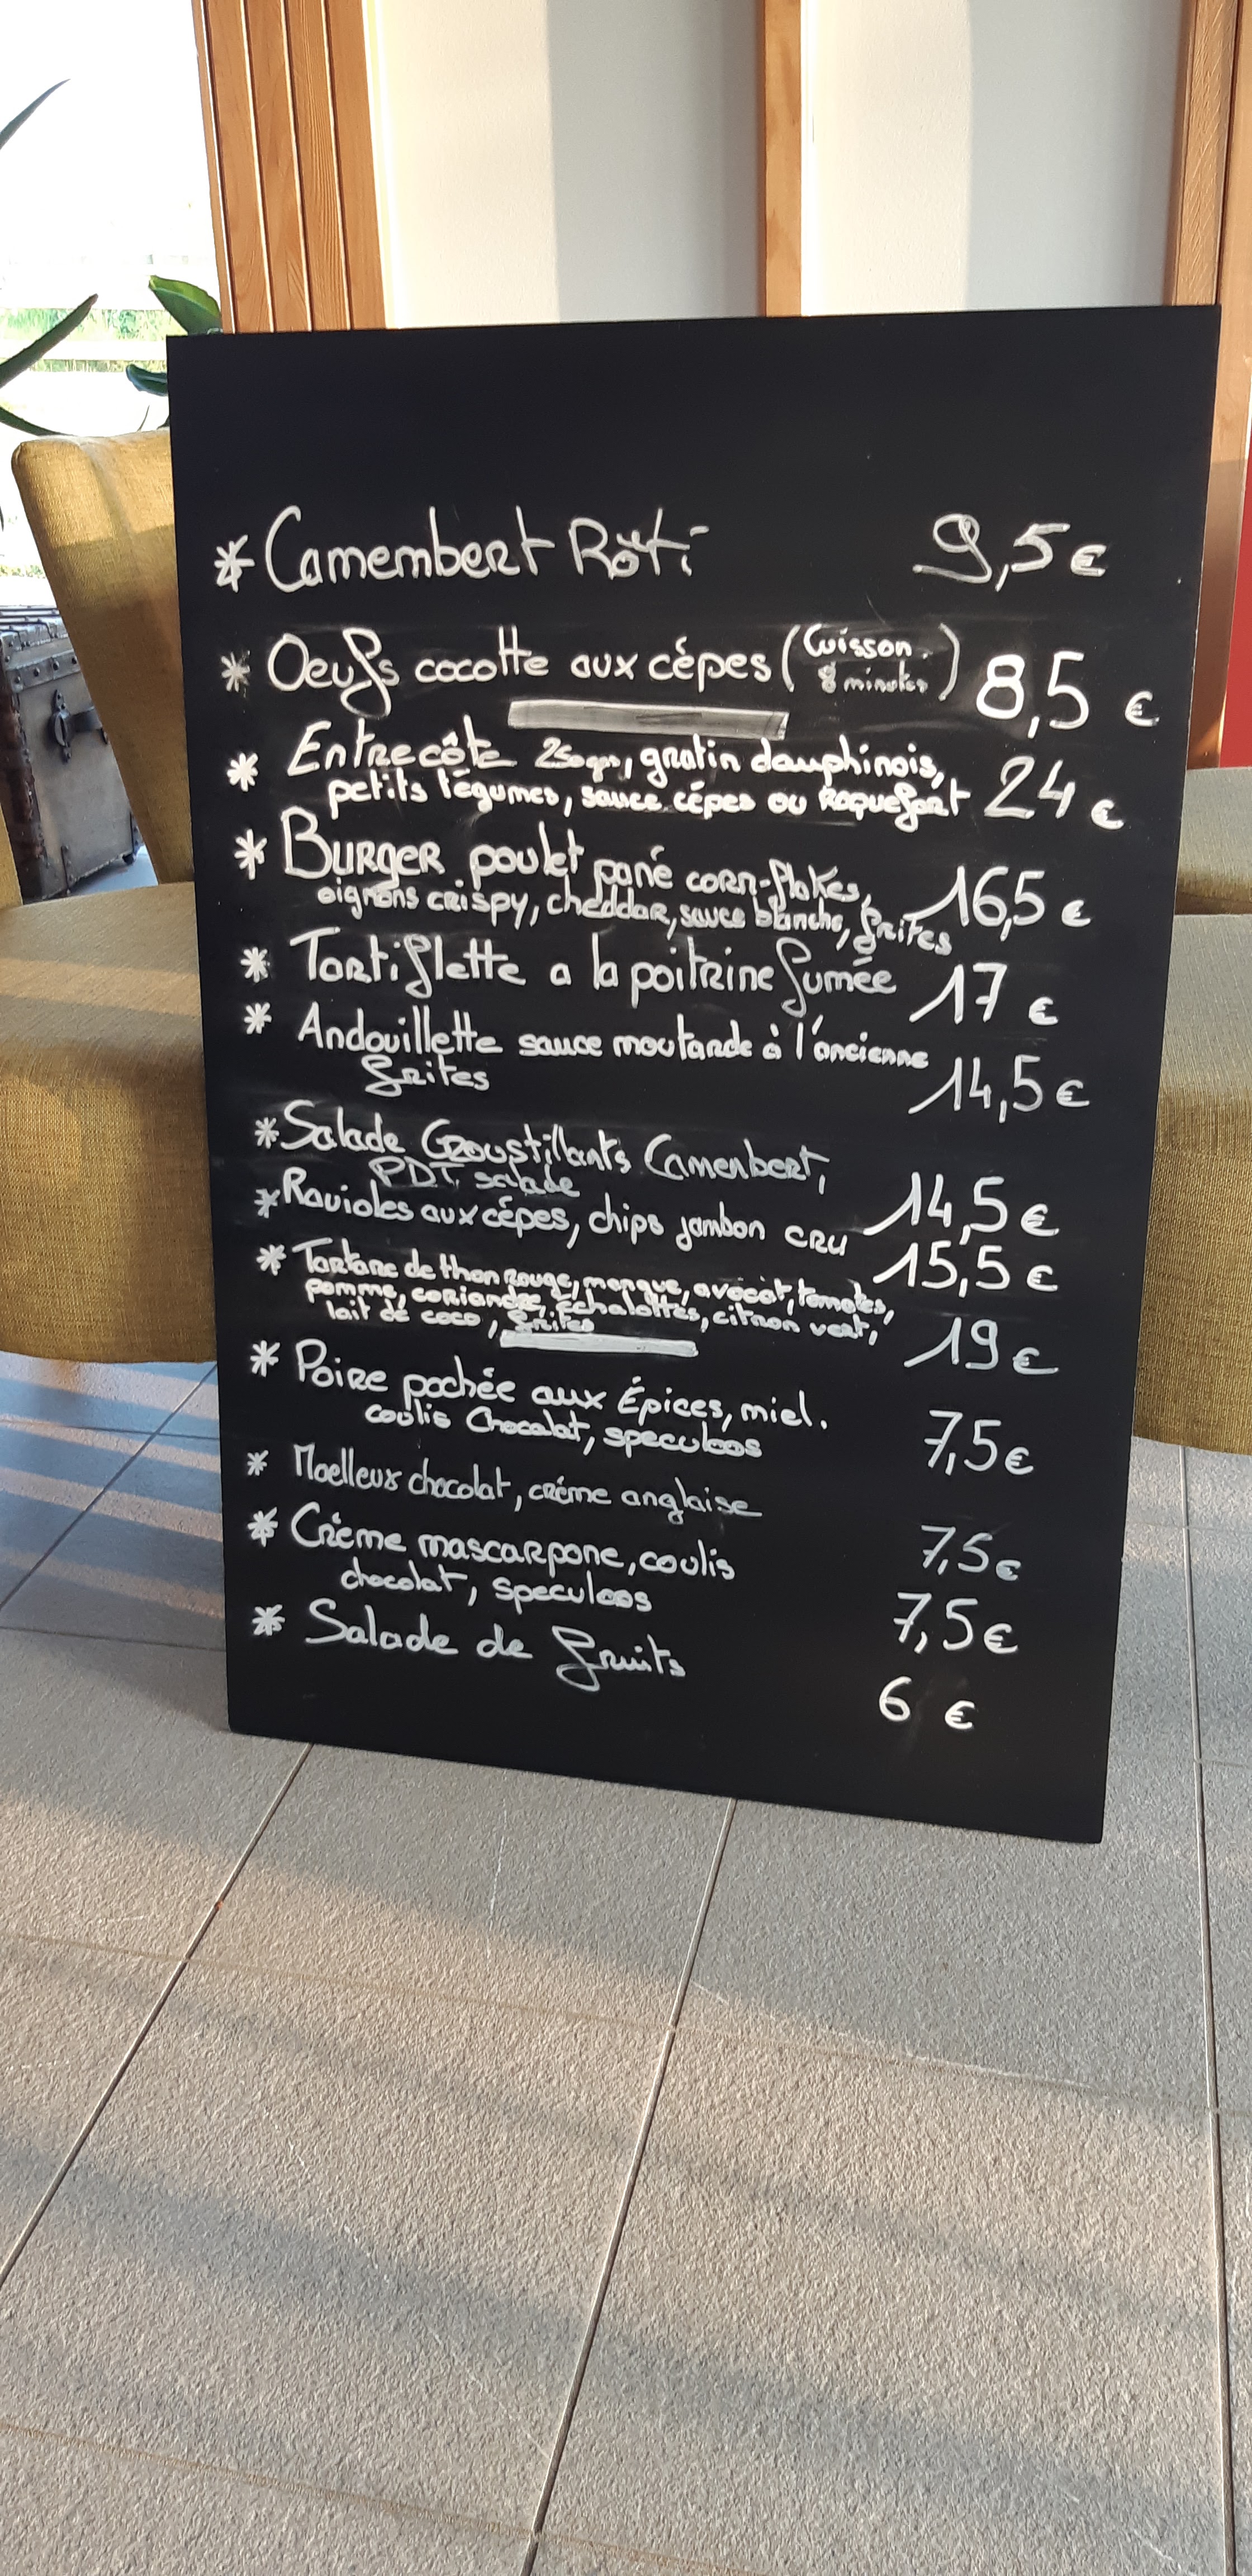 * Camembert Rôti 9,5 €
* Oeufs cocotte aux cèpes (Cuisson 8 minutes) 8,5 €
* Entrecôte 250gr, gratin dauphinois,
petits légumes, sauce cèpes ou Roquefort 24 €
* BURGER poulet pané corn-flakes,
oignons crispy, cheddar, sauce blanche, frites 16,5 €
* Tartiflette a la poitrine fumée 17 €
* Andouillette sauce moutarde à l'ancienne
frites 14,5 €
* Salade Croustillants Camembert,
PDT, salade 14,5 €
* Ravioles aux cèpes, chips jambon cru 15,5 €
* Tartare de thon rouge, mangue, avocat, tomates,
pomme, coriandre, échalottes, citron vert,
lait de coco, frites 19 €
* Poire pochée aux Épices, miel.
coulis Chocolat, speculoos 7,5 €
* Moelleux chocolat, crème anglaise 7,5 €
* Crème mascarpone, coulis
chocolat, speculoos 7,5 €
* Salade de fruits 6 €